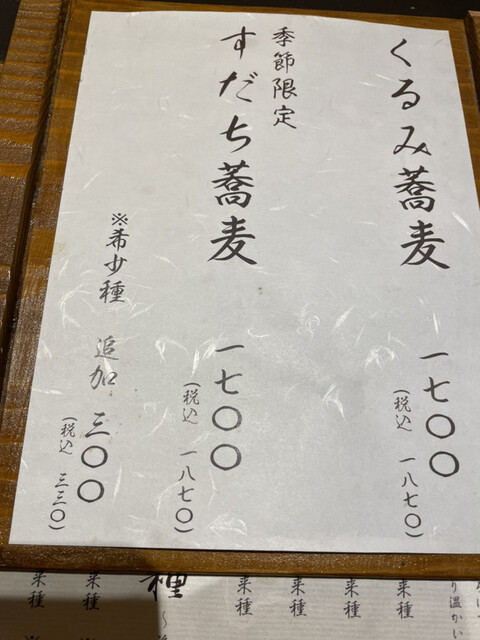 くるみ蕎麦 一七〇〇
(税込 一八七〇)
季節限定
すだち蕎麦 一七〇〇
(税込 一八七〇)
※希少種 追加 三〇〇
(税込 三三〇)
り温かい
来種
来種
来種
来種
種
来種
来種